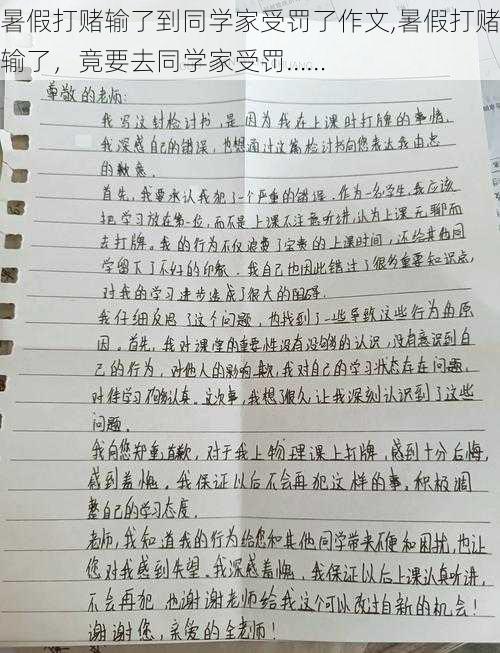 暑假打赌输了到同学家受罚了作文,暑假打赌
输了，竟要去同学家受罚......
尊敬的老师:
我写这封检讨书,是因为我在上课时打牌的事情,
我深感自己的错误,也想通过这篇检讨书向您表达我由忠
的歉意.
首先,我要承认我犯了一个严重的错误.作为一名学生,我应该
把学习放在第一位,而不是上课不注意听讲,认为上课无聊而
去打牌。我的行为不仅浪费了宝贵的上课时间,还给其他同
学留下了不好的印象.我自己也因此错过了很多重要知识点,
对我的学习进步造成了很大的阻碍.
我仔细反思了这个问题,也找到了一些导致这些行为的原
因。首先,我对课堂的重要性没有足够的认识,没有意识到自
己的行为,对他人的影响.其次,我对自己的学习状态存在问题,
对待学习不够认真。这次事,我想了很久,让我深刻认识到了这些
问题.
我向您郑重道歉,对于我上物理课上打牌,感到十分后悔,
感到羞愧。我保证以后不会再犯这样的事,积极调
整自己的学习态度.
老师,我知道我的行为给您和其他同学带来不便和困扰,也让
您对我感到失望。我深感羞愧,我保证以后上课认真听讲,
不会再犯,也谢谢老师给我这个可以改过自新的机会!
谢谢您,亲爱的全老师!